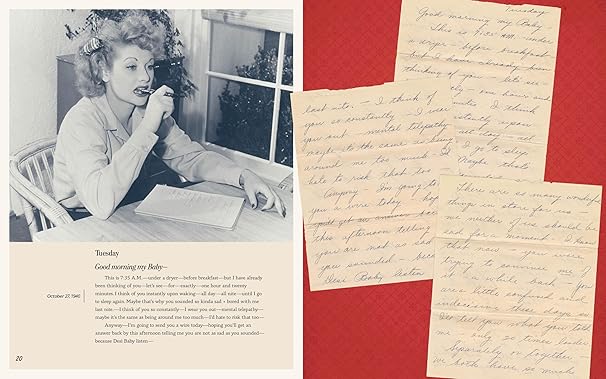 Tuesday
Good morning my Baby~
October 27, 1940
This is 7:35 A.M.—under a dryer—before breakfast—but I have already
been thinking of you—let's see—for—exactly—one hour and twenty
minutes. I think of you instantly upon waking—all day—all nite—until I go
to sleep again. Maybe that's why you sounded so kinda sad + bored with me
last nite.—I think of you so constantly—I wear you out—mental telepathy—
maybe it's the same as being around me too much—I'd hate to risk that too—
Anyway—I'm going to send you a wire today—hoping you'll get an
answer back by this afternoon telling me you are not as sad as you sounded—
because Desi Baby listen—
20
Tuesday
Good morning my Baby~
This is 7:35 A.M.—under
a dryer—before breakfast—
but I have already been
thinking of you—let's see—
one hour and
I think
instantly upon
all day—all
I go to sleep
Maybe that's
last nite.—I think of
you so constantly—I wear
you out—mental telepathy
maybe its the same as being
around me too much—I'd
hate to risk that too—
Anyway—I'm going to
you a wire today—
this afternoon telling
you are not as sad
you sounded—
Desi Baby listen
There are so many wonderful
things in store for us—
neither of us should be
sad for a moment—I know
that now—you were
trying to convince me
a while back—for
little confused and
indecisive these days so
you told
me—only
Separately or together—
we both have so much